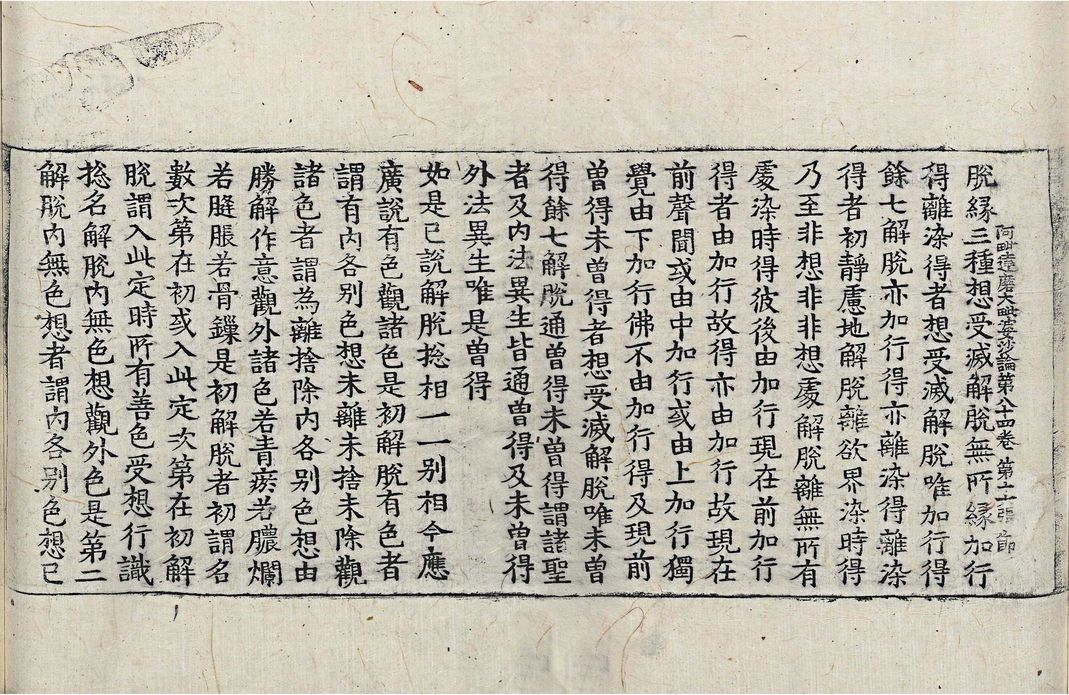 脫縁三種想受滅解脫無所縁加行
阿毗達磨大毗婆沙論第八十四卷 第十二張 節
得離染得者想受滅解脫唯加行得
餘七解脫亦加行得亦離染得離染
得者初靜慮地解脫離欲界染時得
乃至非想非非想處解脫離無所有
處染時得彼後由加行現在前加行
得者由加行故得亦由加行故現在
前聲聞或由中加行或由上加行獨
覺由下加行佛不由加行得及現前
曾得未曾得者想受滅解脫唯未曾
得餘七解脫通曾得未曾得謂諸聖
者及內法異生皆通曾得及未曾得
外法異生唯是曾得
如是已說解脫捴相一一別相今應
廣說有色觀諸色是初解脫有色者
謂有內各別色想未離未捨未除觀
諸色者謂為離捨除內各別色想由
勝解作意觀外諸色若青瘀若膿爛
若膖脹若骨鏁是初解脫者初謂名
數次第在初或入此定次第在初解
脫謂入此定時所有善色受想行識
捴名解脫內無色想觀外色是第二
解脫內無色想者謂內各別色想已